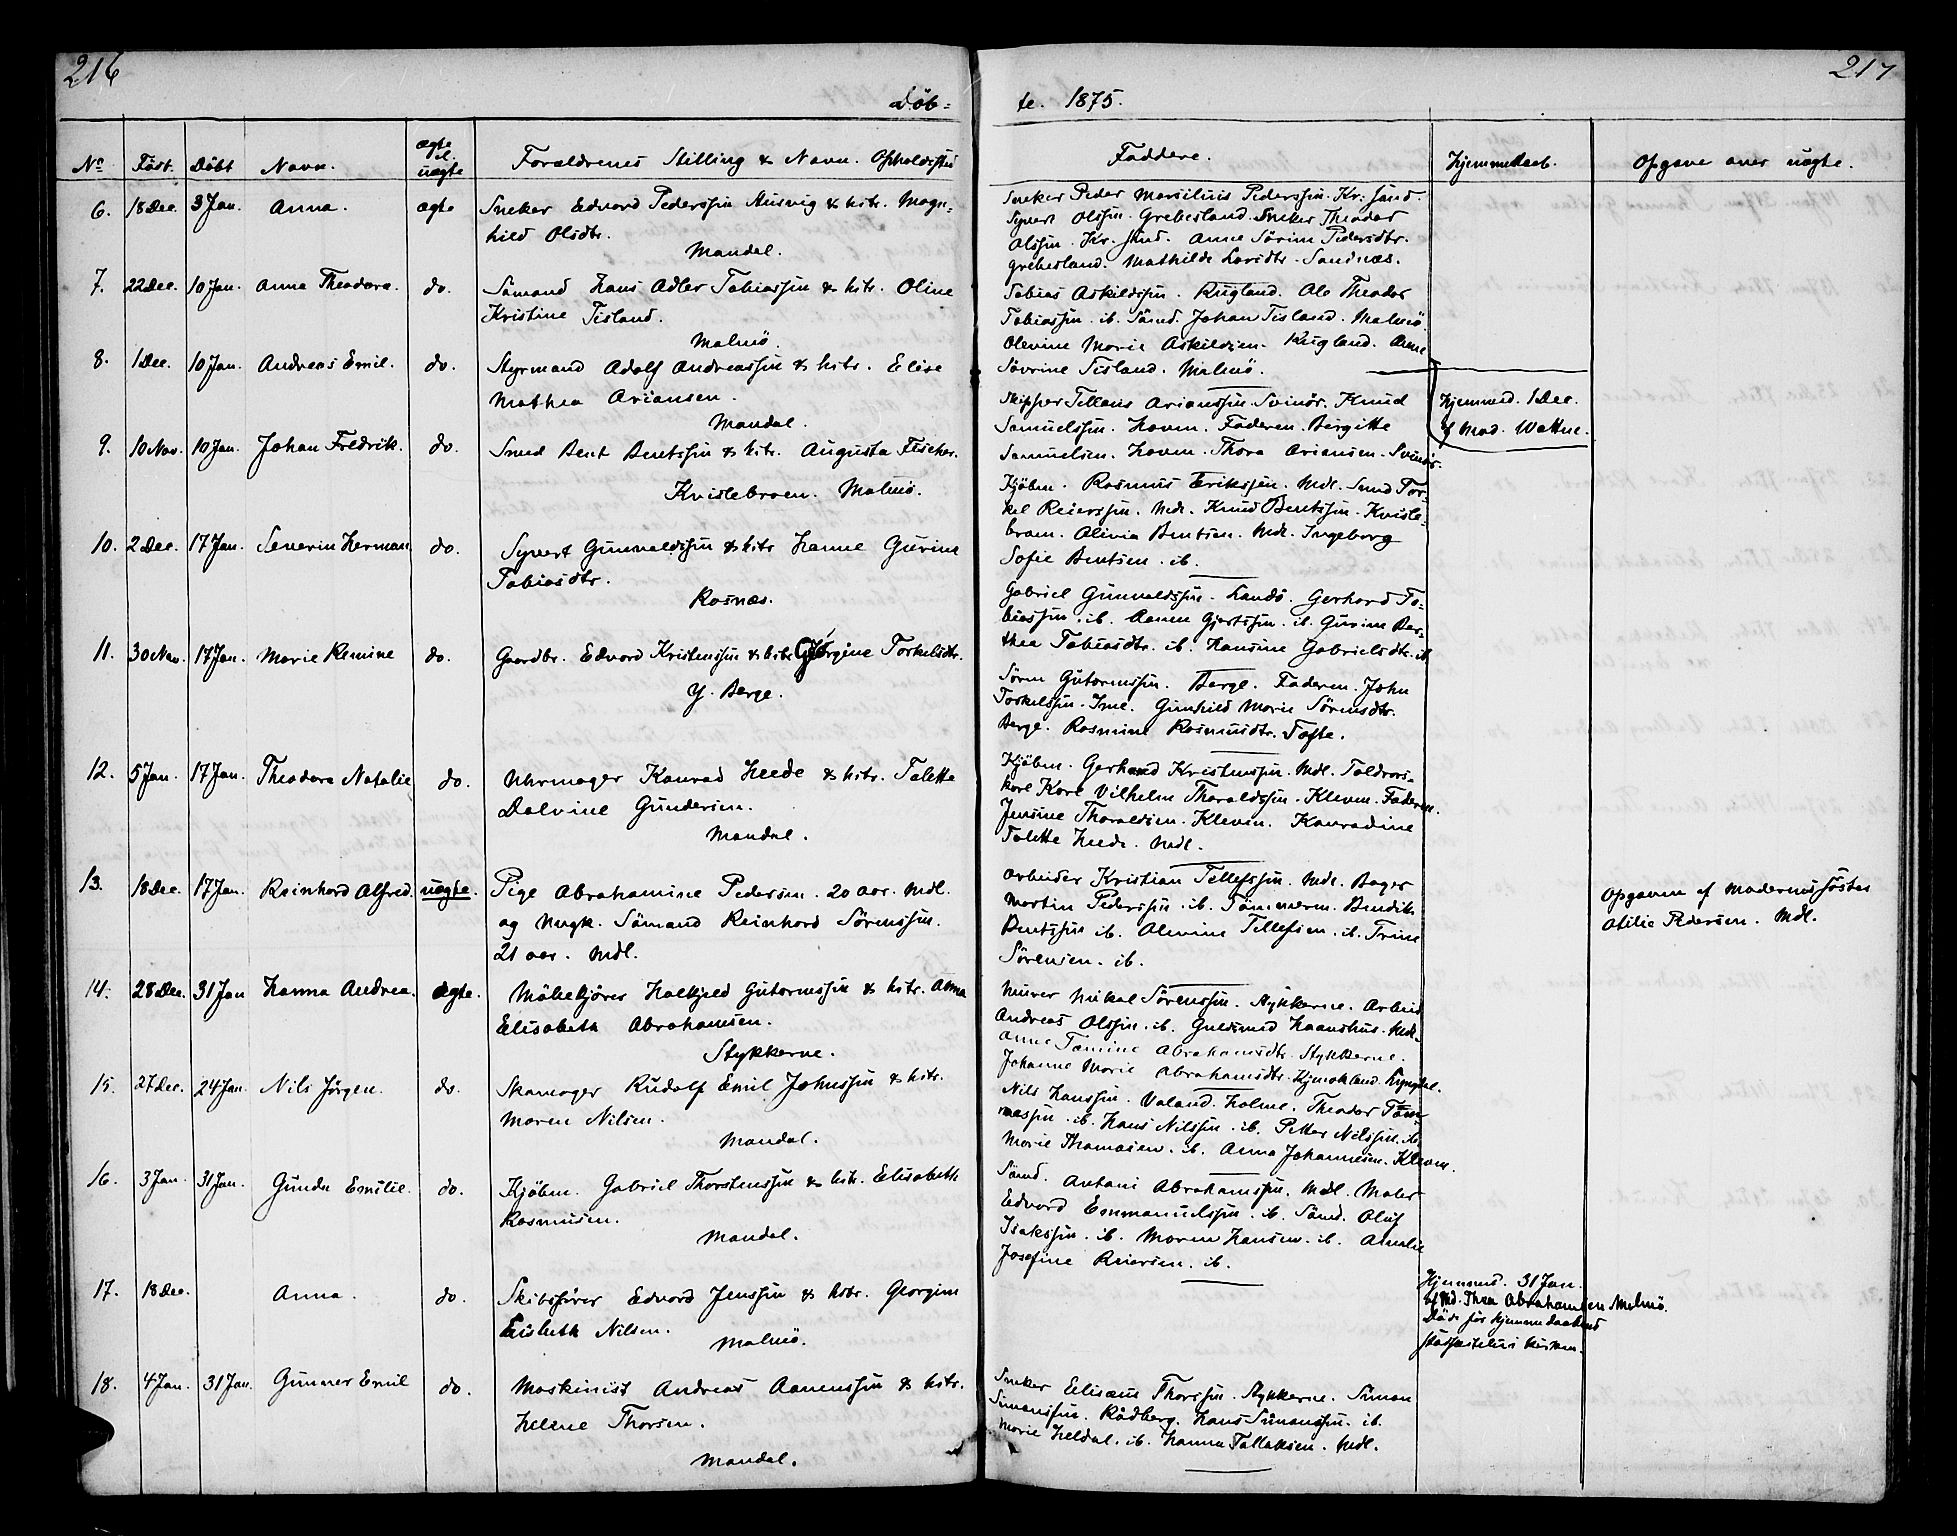 216
217
Döb-
te. 1875.
No Født. Döbt Navn. ægte el. uægte Forældrenes Stilling & Navn. Opholdssted
Faddere. Hjemmedaab. Opgave over uægte.
6. 18 Dec. 3 Jan. Anna. ægte Sneker Edvard Pederssøn & hstr. Magn-
hild Olsdtr.
Mandal.
Sneker Peder Marsilius Pederssøn. Kr. sand.
Syvert Olssøn. Grebesland. Sneker Theodor
Olssøn. Kr. sand. Anne Sörine Pedersdtr.
Grebesland. Mathilde Larsdtr. Sandnæs.
7. 22 Dec. 10 Jan. Anna Theodora. do. Sömand Hans Adler Tobiassøn & hstr. Oline
Kristine Tisland.
Malmö.
Tobias Askildssøn. Rugland. Ole Theodor
Tobiassøn. ib. Sömd. Johan Tisland. Malmö.
Olevine Marie Askildsen. Rugland. Anne
Sövrine Tisland. Malmö.
8. 1 Dec. 10 Jan. Andreas Emil. do. Styrmand Adolf Andreassøn & hstr. Elise
Mathea Ariansen.
Mandal.
Skipper Tellaus Arianssøn. Svinör. Knud
Samuelssøn. Hoven. Faderen. Bergitte
Samuelsen. Hoven. Thora Ariansen. Svinör.
Hjemmed. 1 Dec.
af Mad. Wattne.
9. 10 Nov. 10 Jan. Johan Fredrik. do. Smed Bent Bentssøn & hstr. Augusta Fischer.
Kvislebroen. Malmö.
Kjöbm. Rasmus Erikssøn. Mdl. Smed Tor-
kel Reierssøn. Mdl. Knud Bentssøn. Kvisle-
broen. Olivia Bentsen. Mdl. Ingeborg
Sofie Bentsen. ib.
10. 2 Dec. 17 Jan. Severin Herman. do. Syvert Gunvaldssøn & hstr. Hanne Gurine
Tobiasdtr.
Rosnæs.
Gabriel Gunvaldssøn. Landö. Gerhard To-
biassøn. ib. Aanen Gjertssøn. ib. Gurine Ber-
thea Tobiasdtr. ib. Hansine Gabrielsdtr. ib
11. 30 Nov. 17 Jan. Marie Remine do. Gaardbr. Edvard Kristenssøn & hstr. Jörgine Torkelsdtr.
Y. Berge.
Sören Gutormssøn. Berge. Faderen. John
Torkelssøn. Ime. Gunhild Marie Sörensdtr.
Berge. Rasmine Rasmusdtr. Tofte.
12. 5 Jan. 17 Jan. Theodora Natalie do. Uhrmager Konrad Heede & hstr. Talette
Dalvine Gundersen.
Mandal.
Kjöbm. Gerhard Kristenssøn. Mdl. Toldrors-
karl Karl Vilhelm Tharaldssøn. Kleven. Faderen.
Jensine Tharaldsen. Kleven. Konradine
Talette Heede. Mdl.
13. 18 Dec. 17 Jan. Reinhard Alfred. uægte. Pige Abrahamine Pedersen. 20 aar. Mdl.
og Ungk. Sömand Reinhard Sörenssøn.
21 aar. Mdl.
Arbeider Kristian Tellefssøn. Mdl. Bager
Martin Pederssøn. ib. Tömmerm. Bendik
Bentssøn ib. Olevine Tellefsen. ib. Trine
Sörensen. ib.
Opgaven af Moderens Söster
Otilie Pedersen. Mdl.
14. 28 Dec. 31 Jan Hanna Andrea. ægte. Halkjeld Gutormssøn & hstr. Anna
Elisabeth Abrahamsen.
Stykkerne.
Murer Mikal Sörenssøn. Stykkerne. Arbeid.
Andreas Olssøn. ib. Guldsmed Haanshus. Mdl.
Anne Tomine Abrahamsdtr. Stykkerne.
Johanne Marie Abrahamsdtr. Lyngdal.
15. 27 Dec. 24 Jan. Nils Jörgen. do. Skomager Rudolf Emil Johnssøn & hstr.
Maren Nilsen.
Mandal.
Nils Hanssøn. Valand. Holme. Theodor Tom-
massøn. ib. Hans Nilssøn. ib. Petter Nilssøn. ib.
Marie Thomasen. ib. Anna Johannesen. Kleven.
16. 3 Jan. 31 Jan. Gunda Emilie. do. Kjöbm. Gabriel Thorstenssøn & hstr. Elisabeth
Rasmusen.
Mandal.
Sömd. Antoni Abrahamssøn. Mdl. Maler
Edvard Emmanuelssøn. ib. Sömd. Oluf
Isakssøn. ib. Maren Hansen. ib. Amalie
Josefine Reiersen. ib.
17. 18 Dec. Anna. do. Skibsförer Edvard Jenssøn & hstr. Georgine
Elisbeth Nilsen.
Malmö.
Hjemmed. 31 Jan.
af Md. Thea Abrahamsen Malmö.
Död för Hjemmedaabens
stadfæstelse i Kirken.
18. 4 Jan. 31 Jan. Gunner Emil do. Maskinist Andreas Aanenssøn & hstr.
Helene Thorsen.
Mandal.
Sneker Elisæus Thorssøn. Stykkerne. Simon
Simonssøn. Rödberg. Hans Simonssøn. ib.
Marie Heldal. ib. Hanna Tallaksen. Mdl.